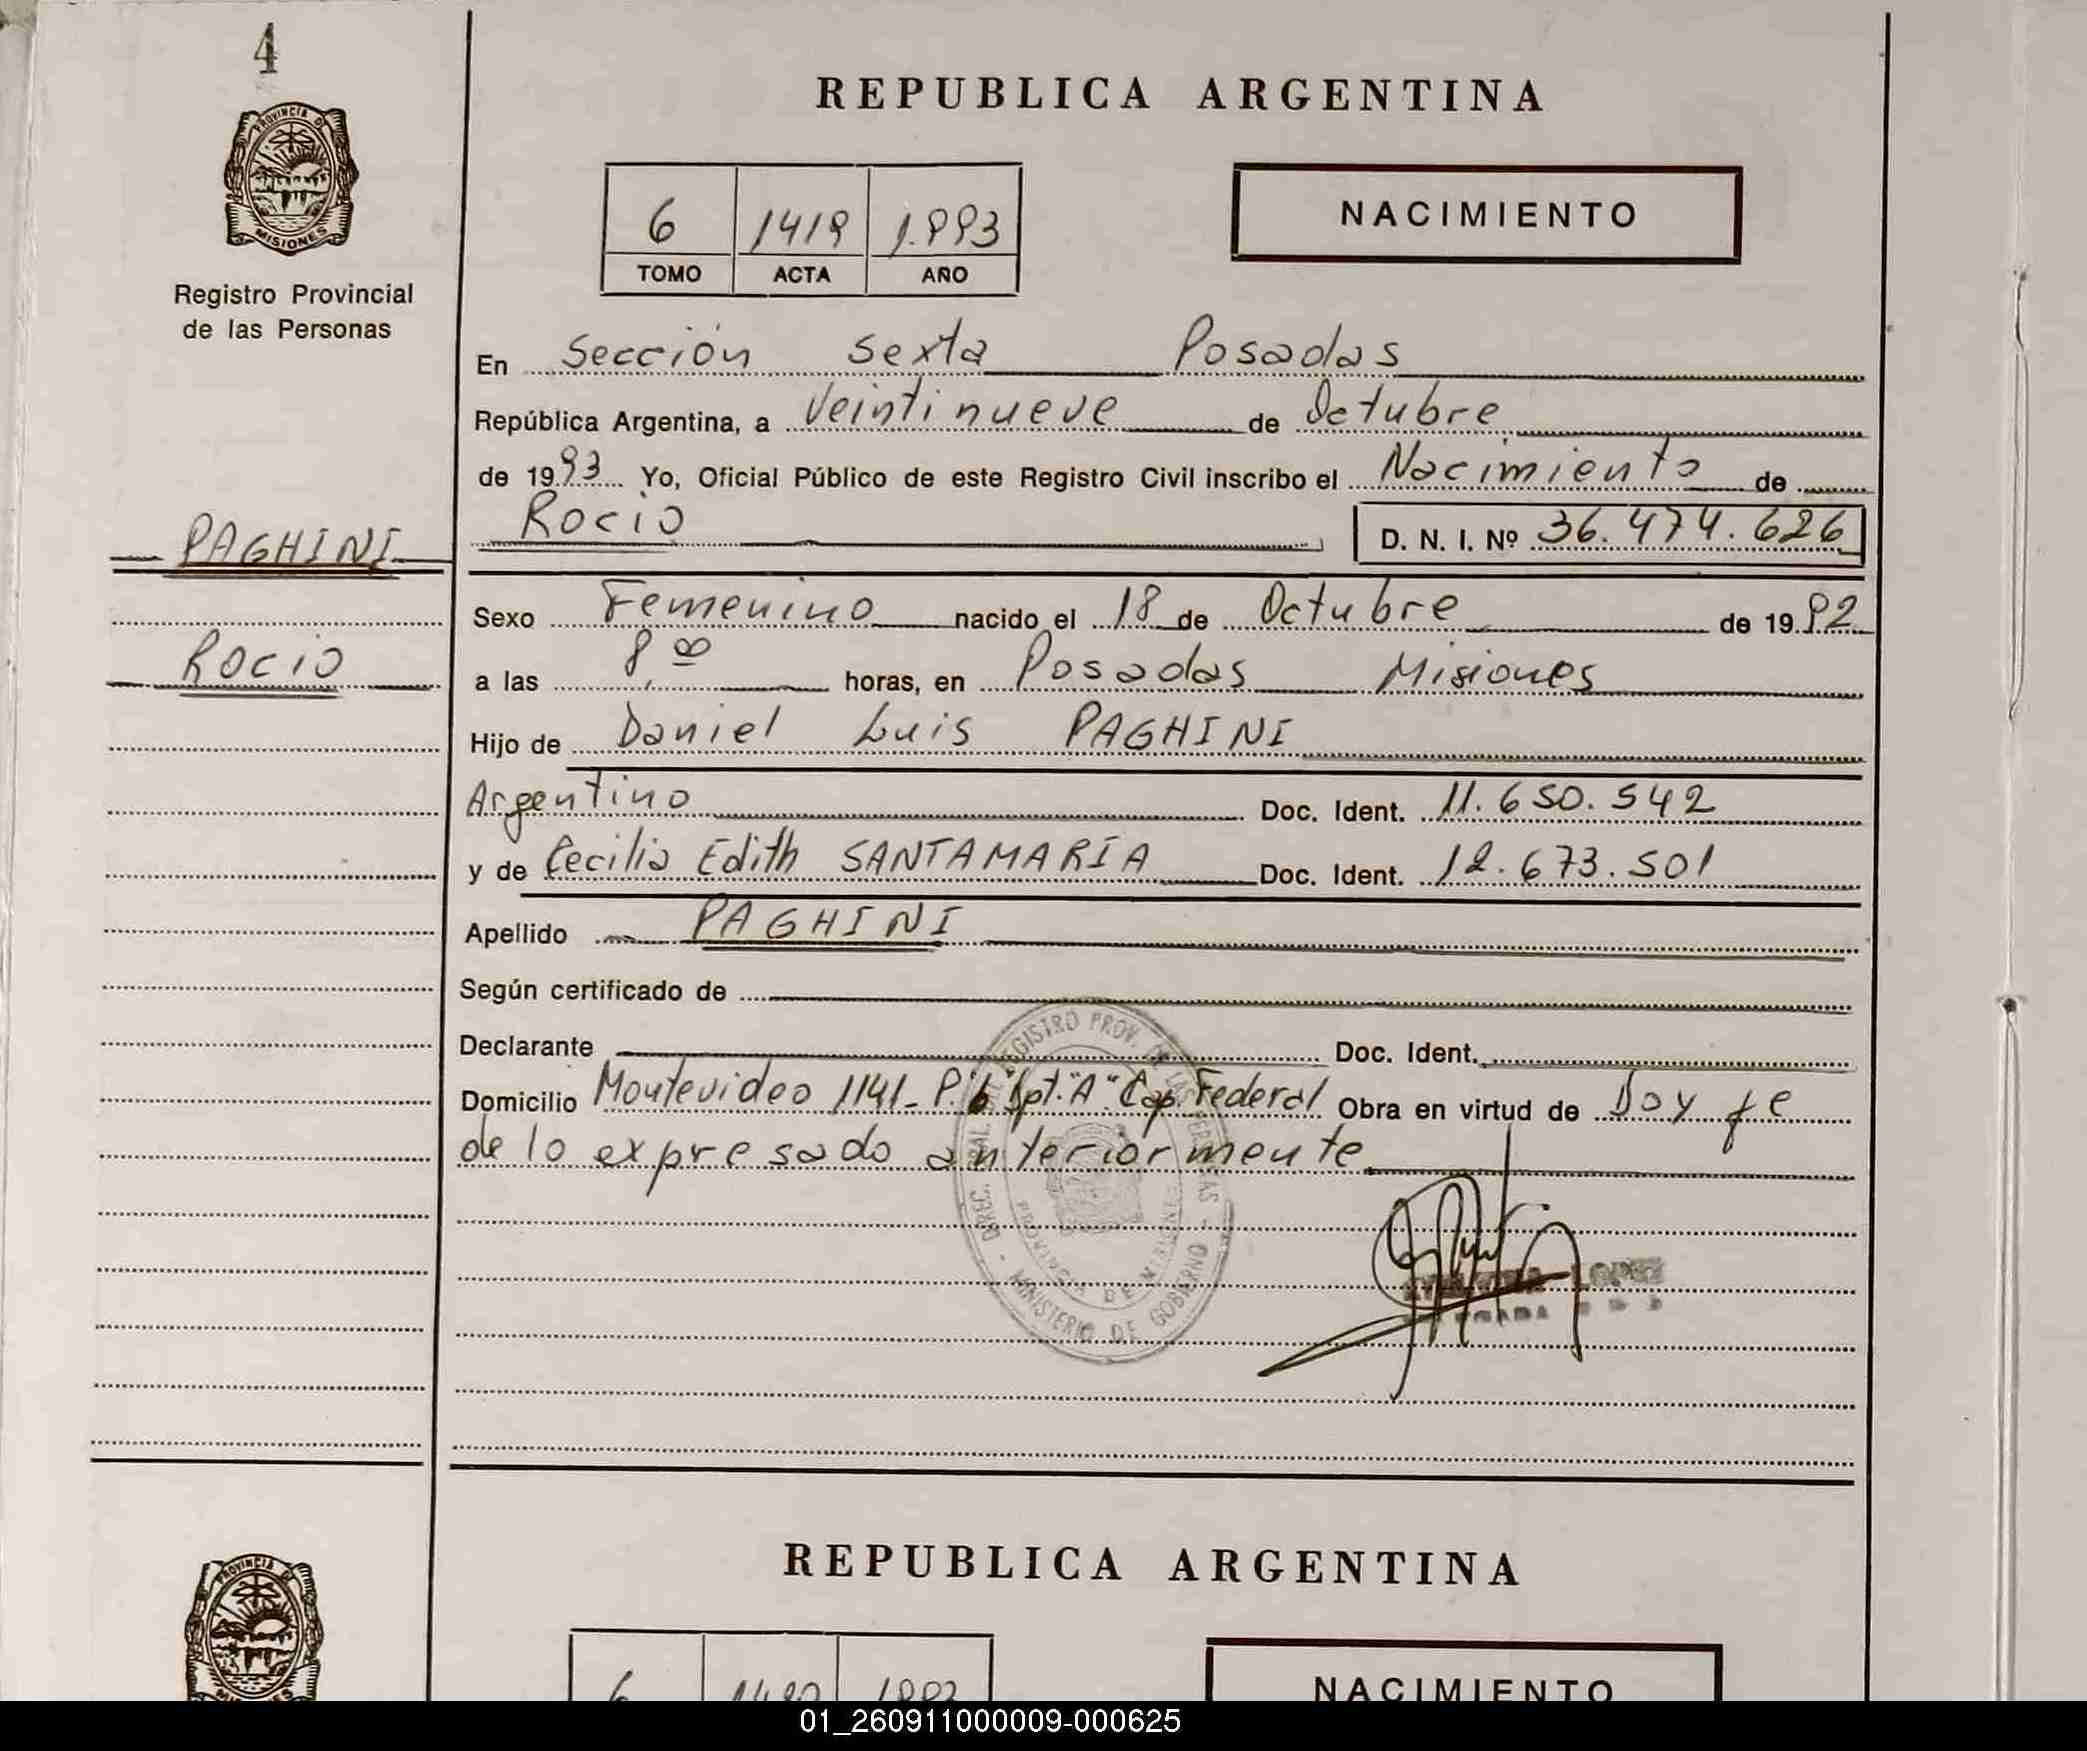 4
PROVINCIA DE
MISIONES
Registro Provincial
de las Personas
REPUBLICA ARGENTINA
6 1419 1.993
TOMO ACTA AÑO
NACIMIENTO
En Sección Sexta Posadas
República Argentina, a Veintinueve de Octubre
de 1993 Yo, Oficial Público de este Registro Civil inscribo el Nacimiento de
PAGHINI
Rocio D. N. I. Nº 36.474.626
Sexo Femenino nacido el 18 de Octubre de 1992
ROCIO
a las 8 00 horas, en Posadas Misiones
Hijo de Daniel Luis PAGHINI
Argentino Doc. Ident. 11.650.542
y de Cecilia Edith SANTAMARÍA Doc. Ident. 12.673.501
Apellido PAGHINI
Según certificado de
Declarante Doc. Ident.
Domicilio Montevideo 1141_ P."6" Dpt."A" Cap. Federal Obra en virtud de Doy fe
de lo expresado anteriormente
DIREC. GRAL. REGISTRO PROV. DE LAS PERSONAS - MINISTERIO DE GOBIERNO -
PROVINCIA DE MISIONES
LOPEZ
REPUBLICA ARGENTINA
PROVINCIA DE
6 1420 1993
NACIMIENTO
01_260911000009-000625